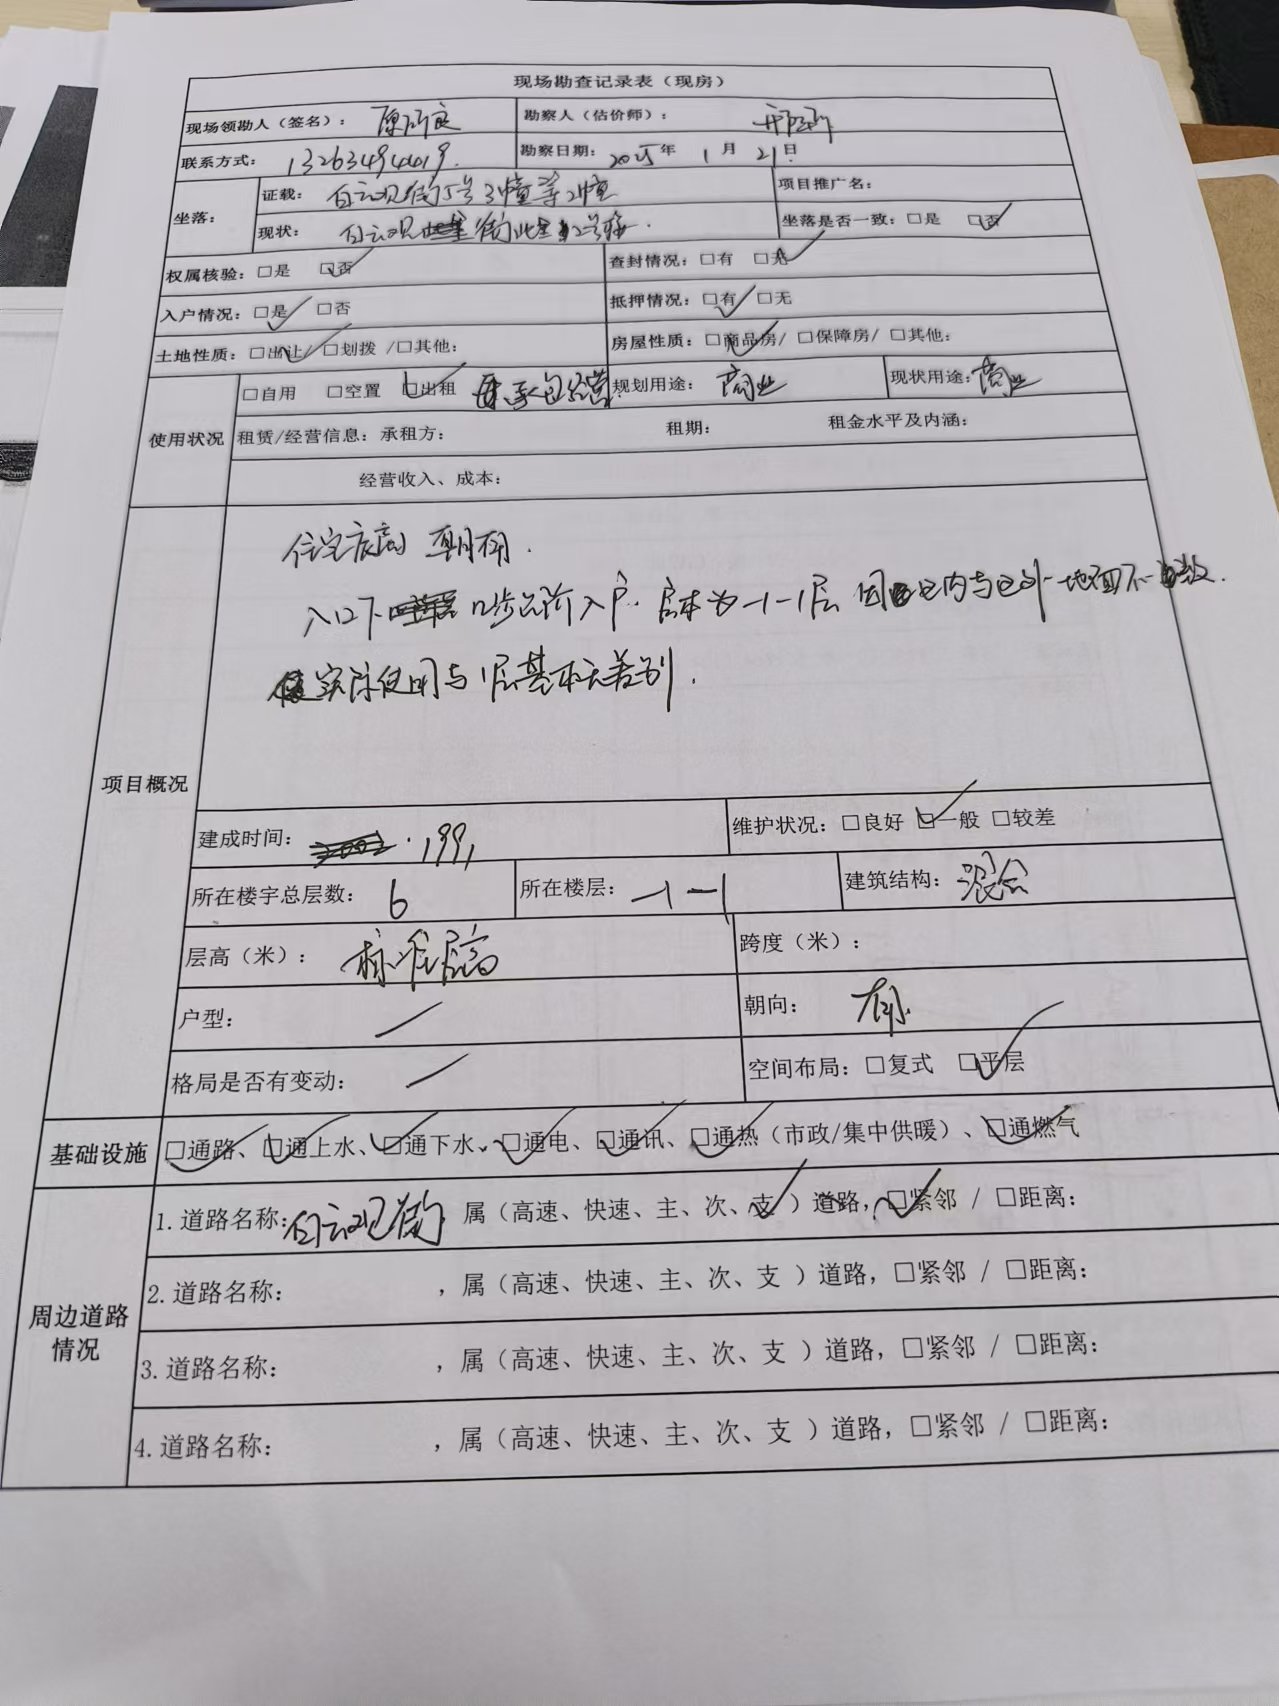 现场勘查记录表（现房）
现场领勘人（签名）：
勘察人（估价师）：
联系方式：
勘察日期：2025年 1月 21日
坐落：
证载：白云观街5号3幢等2幢
项目推广名：
现状：白云观街北里2号楼.
坐落是否一致：□是 □否
权属核验：□是 □否
查封情况：□有 □无
入户情况：□是 □否
抵押情况：□有 □无
土地性质：□出让/ □划拨 /□其他：
房屋性质：□商品房/ □保障房/ □其他：
使用状况
□自用 □空置 □出租 承包经营
规划用途：商业
现状用途：商业
租赁/经营信息：承租方： 租期： 租金水平及内涵：
经营收入、成本：
项目概况
住宅底商 朝南.
入口下 步台阶入户. 层本为-1-1层 因 区内与区外地面不一致.
实际使用与1层基本无差别.
建成时间：1991
维护状况：□良好 □一般 □较差
所在楼宇总层数：6
所在楼层：-1-1
建筑结构：混合
层高（米）：标准层高
跨度（米）：
户型：
朝向：南.
格局是否有变动：
空间布局：□复式 □平层
基础设施
□通路、□通上水、□通下水、□通电、□通讯、□通热（市政/集中供暖）、□通燃气
周边道路情况
1.道路名称：白云观街 属（高速、快速、主、次、支 ）道路，□紧邻 / □距离：
2.道路名称： ，属（高速、快速、主、次、支 ）道路，□紧邻 / □距离：
3.道路名称： ，属（高速、快速、主、次、支 ）道路，□紧邻 / □距离：
4.道路名称： ，属（高速、快速、主、次、支 ）道路，□紧邻 / □距离：